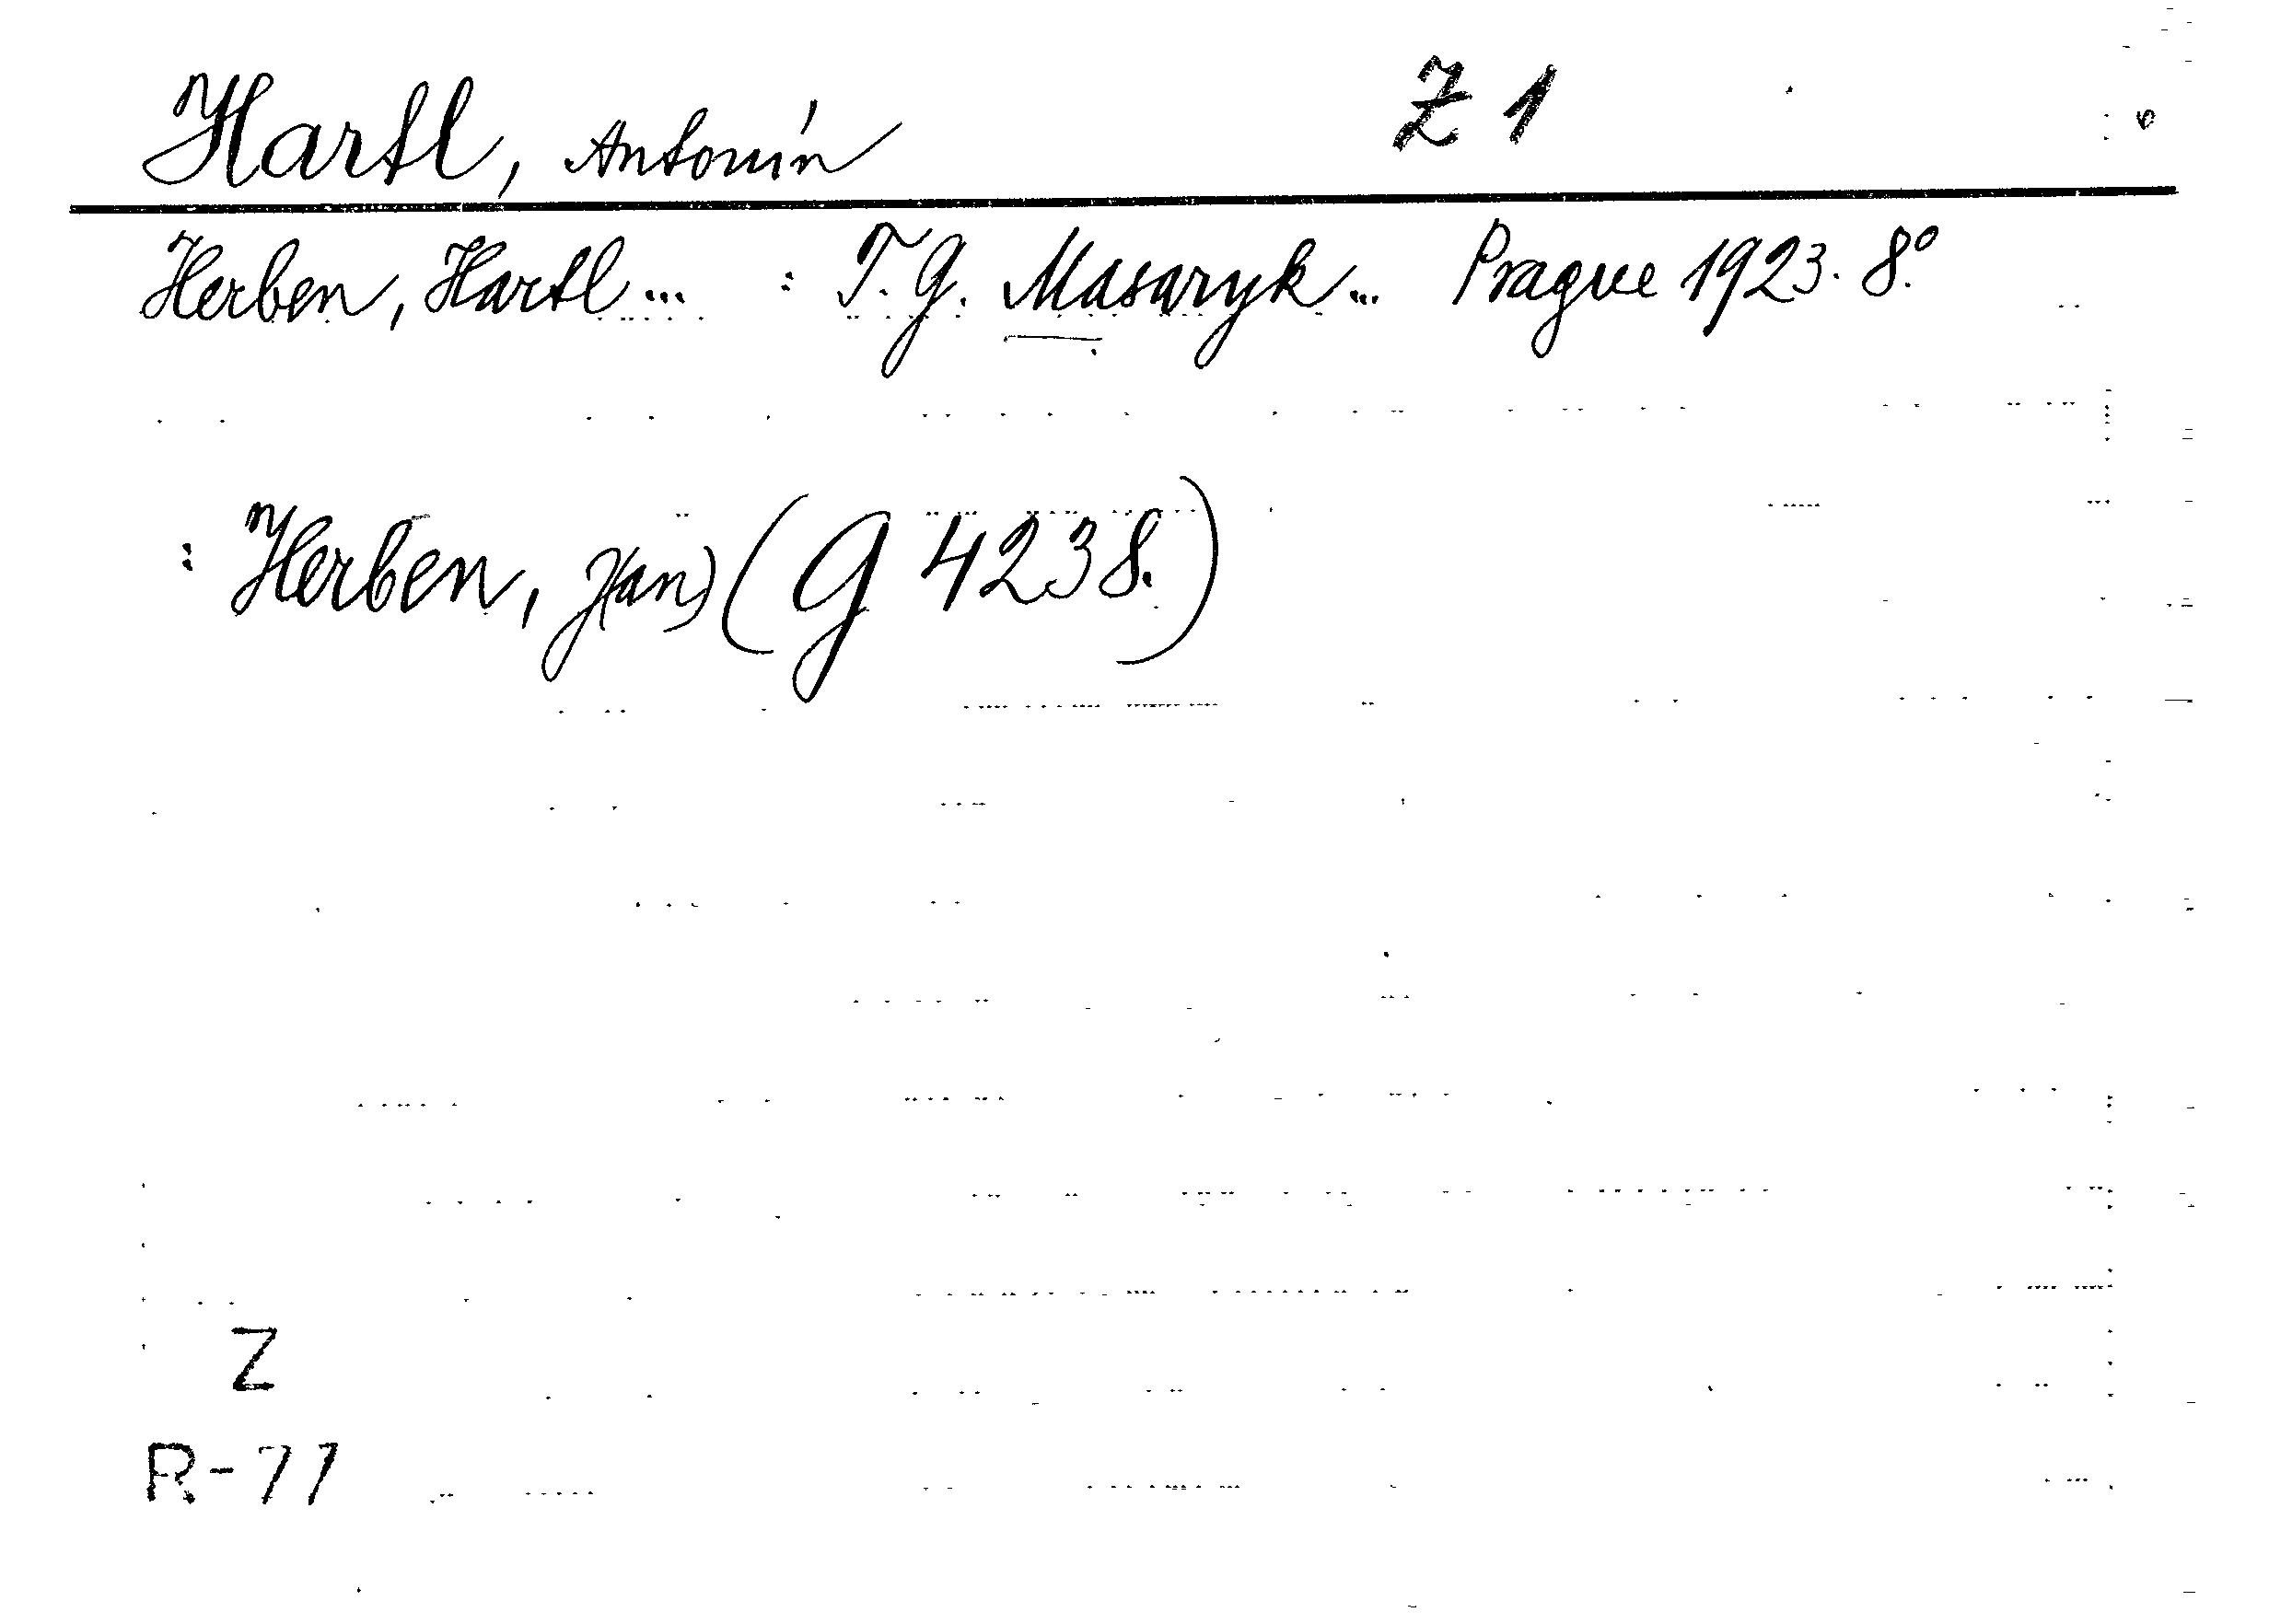 Hartl, Antonín Z 1
Herben, Hartl ... : T. G. Masaryk ... Prague 1923. 8.°
: Herben, J(an) (G 4238.)
Z
R-77